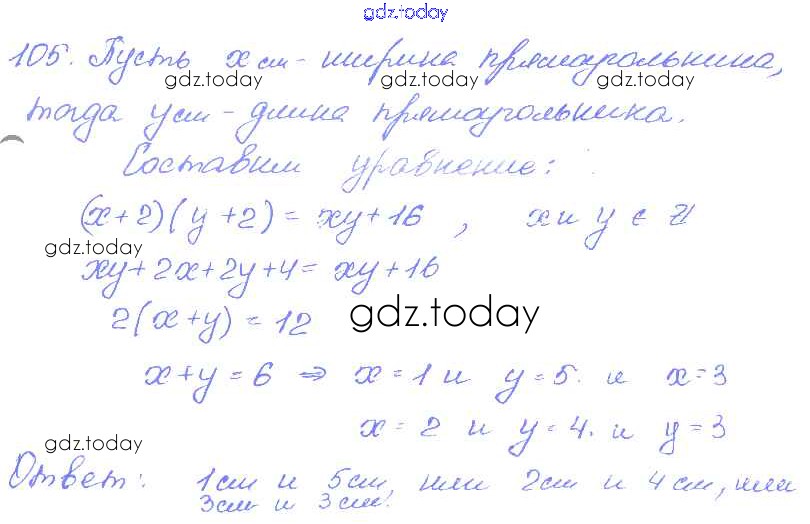 gdz.today
105. Пусть x см - ширина прямоугольника,
gdz.today gdz.today
тогда y см - длина прямоугольника.
Составим уравнение:
(x+2)(y+2) = xy+16 , x и y ∈ Z
gdz.today
xy+2x+2y+4 = xy+16
2(x+y) = 12
gdz.today
x+y = 6 ⇒ x = 1 и y = 5. и x = 3
x = 2 и y = 4. и y = 3
gdz.today gdz.today
Ответ: 1см и 5см, или 2см и 4см, или
3см и 3см.